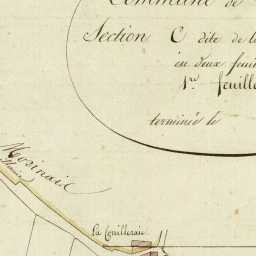 Commune de
Section C dite de la
en deux feuil
1re feuille
terminée le
La Couillerais